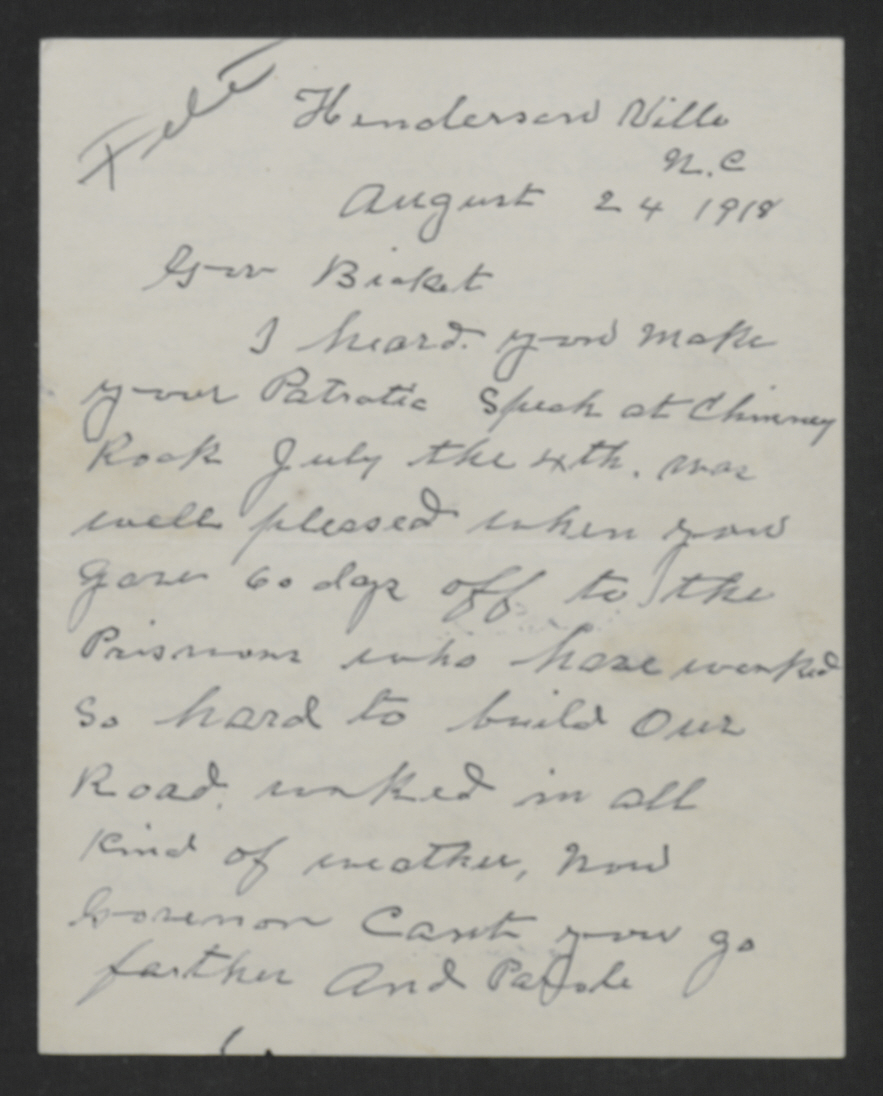 File
Henderson Ville
N.C
August 24 1918
Gov Bicket
I heard you make
your Patrotic Speech at Chimney
Rock July the 4th. was
well pleased when you
gave 60 days off to the
Prisnors who have worked
So hard to build Our
Road. worked in all
Kind of weather, Now
Govenor Cant you go
farther And Parole